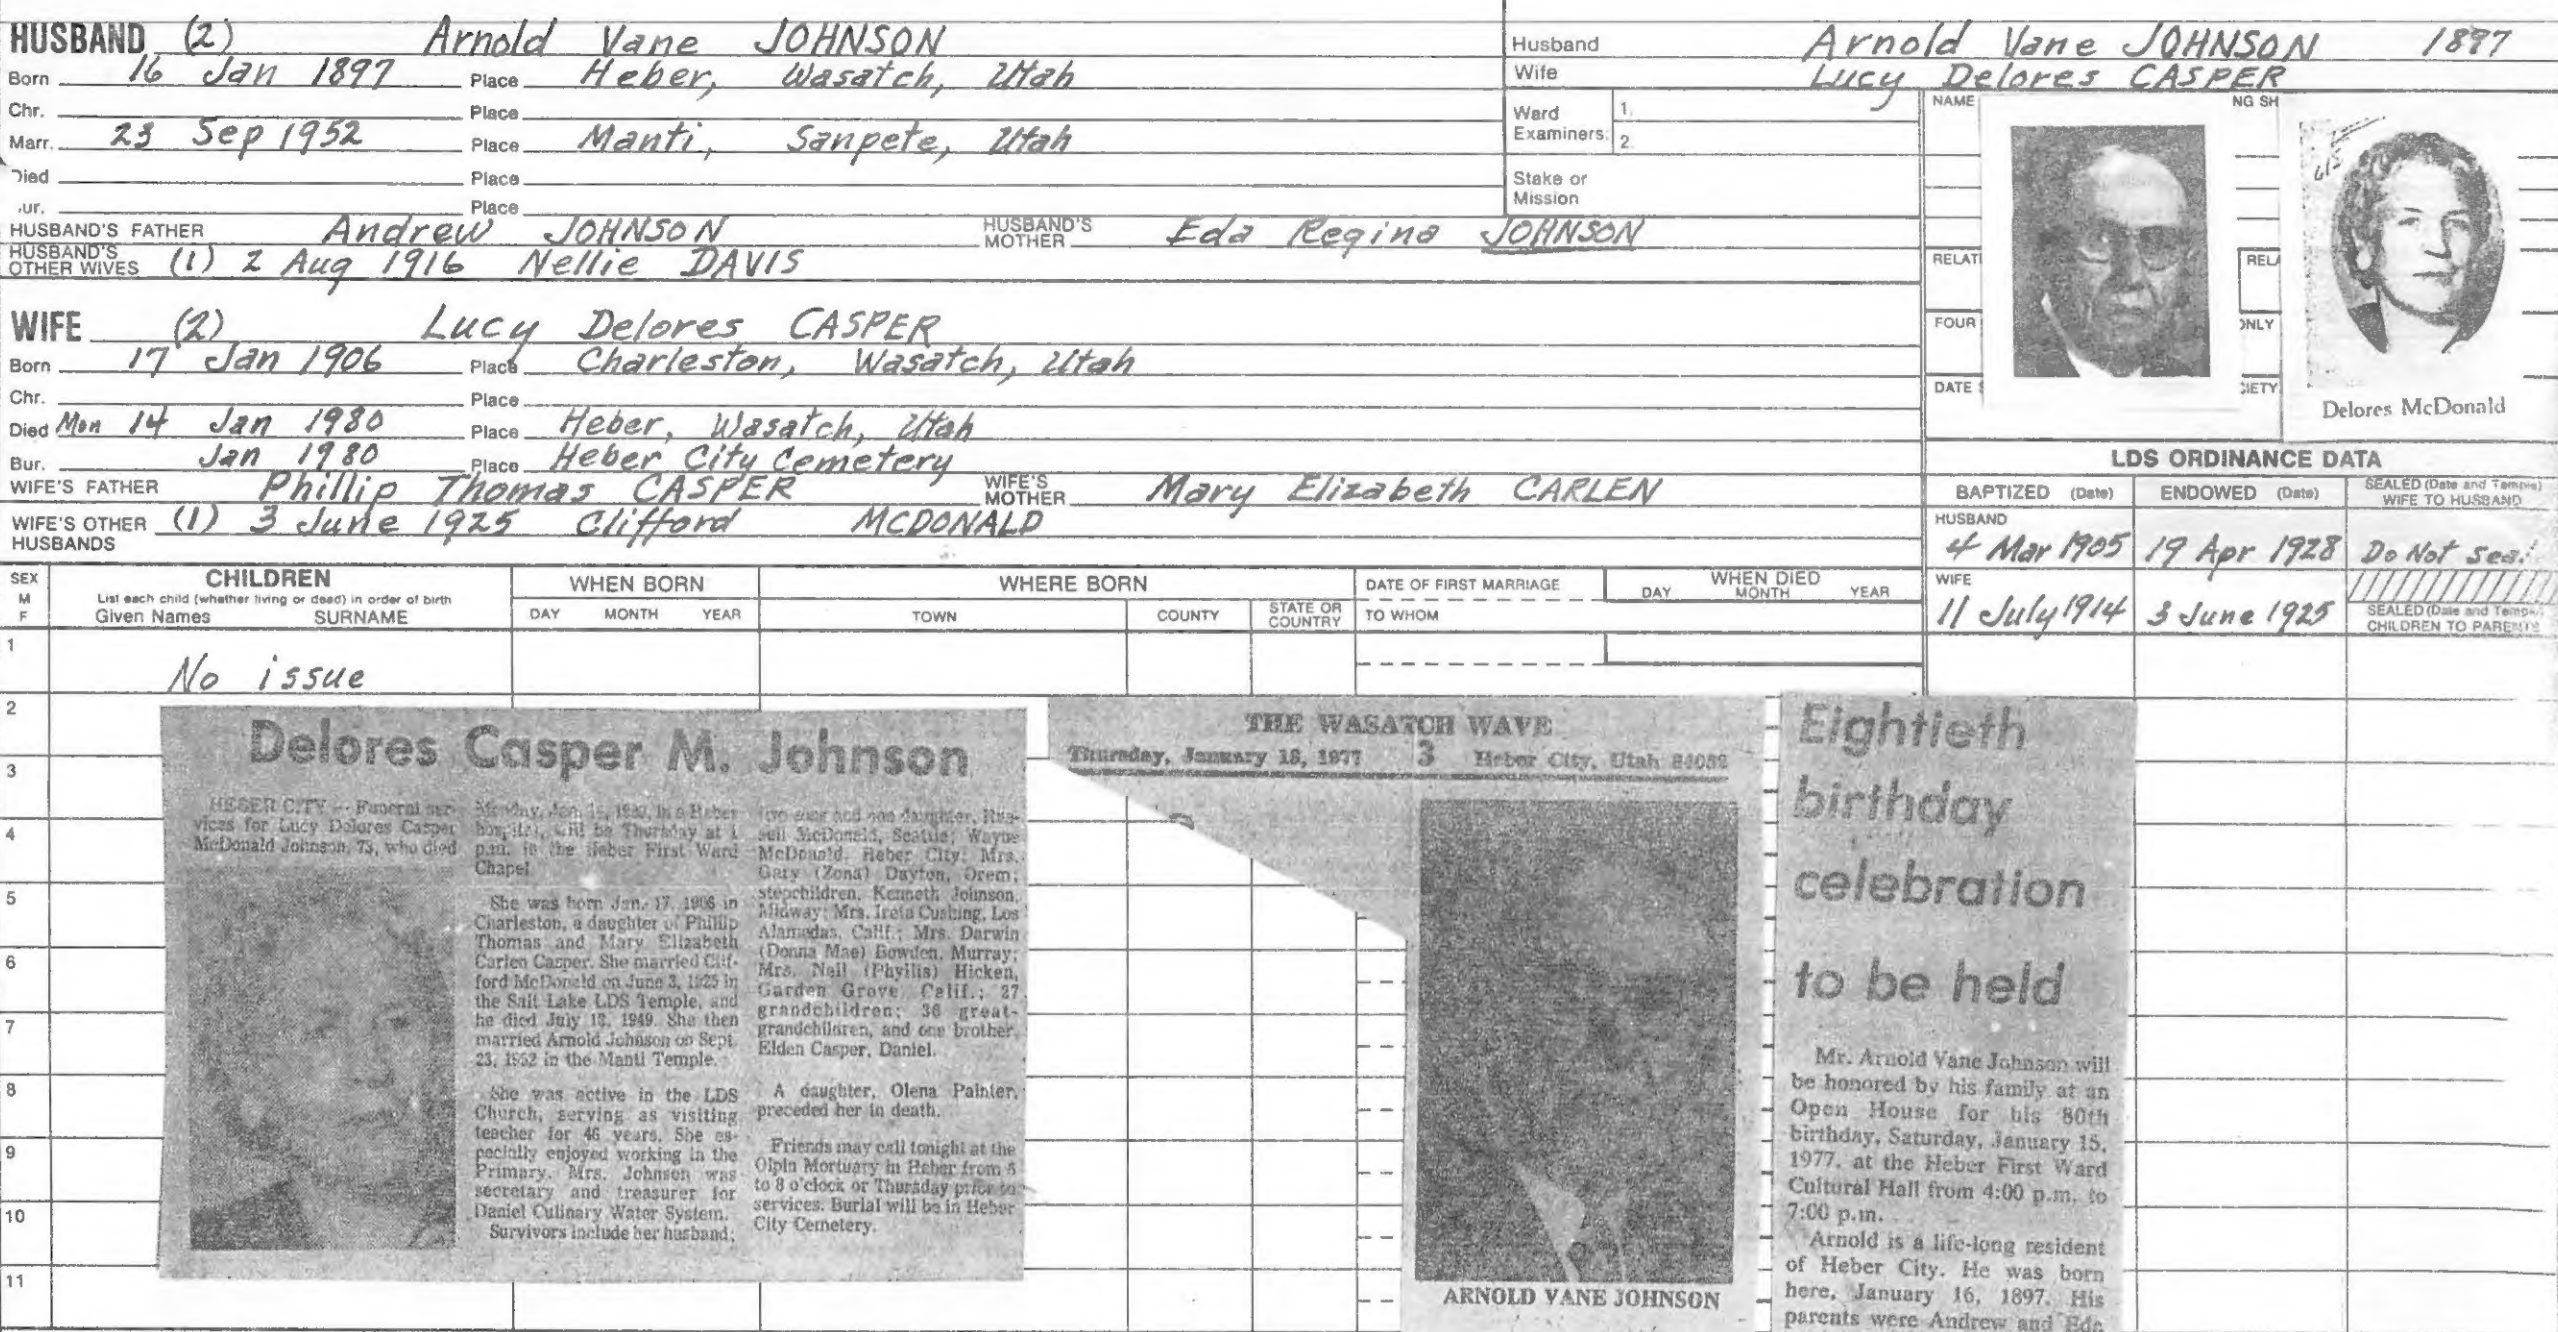 HUSBAND (2) Arnold Vane JOHNSON
Born 16 Jan 1897 Place Heber, Wasatch, Utah
Chr. Place
Marr. 23 Sep 1952 Place Manti, Sanpete, Utah
Died Place
ur. Place
HUSBAND'S FATHER Andrew JOHNSON HUSBAND'S MOTHER Eda Regina JOHNSON
HUSBAND'S OTHER WIVES (1) 2 Aug 1916 Nellie DAVIS
WIFE (2) Lucy Delores CASPER
Born 17 Jan 1906 Place Charleston, Wasatch, Utah
Chr. Place
Died Mon 14 Jan 1980 Place Heber, Wasatch, Utah
Bur. Jan 1980 Place Heber City Cemetery
WIFE'S FATHER Phillip Thomas CASPER WIFE'S MOTHER Mary Elizabeth CARLEN
WIFE'S OTHER HUSBANDS (1) 3 June 1925 Clifford MCDONALD
Husband Arnold Vane JOHNSON 1897
Wife Lucy Delores CASPER
Ward Examiners: 1.
2.
Stake or Mission
NAME NG SH
RELATI RELA
FOUR ONLY
DATE S CIETY
Delores McDonald
LDS ORDINANCE DATA
BAPTIZED (Date) ENDOWED (Date) SEALED (Date and Temple) WIFE TO HUSBAND
HUSBAND
4 Mar 1905 19 Apr 1928 Do Not seal
WIFE
11 July 1914 3 June 1925 SEALED (Date and Temple) CHILDREN TO PARENTS
SEX M F
CHILDREN
List each child (whether living or dead) in order of birth
Given Names SURNAME
WHEN BORN
DAY MONTH YEAR
WHERE BORN
TOWN COUNTY STATE OR COUNTRY
DATE OF FIRST MARRIAGE
TO WHOM
WHEN DIED
DAY MONTH YEAR
1 No issue
2
3
4
5
6
7
8
9
10
11
Delores Casper M. Johnson
HEBER CITY — Funeral ser-
vices for Lucy Delores Casper
McDonald Johnson, 73, who died
Monday, Jan. 14, 1980, in a Heber
hospital, will be Thursday at 1
p.m. in the Heber First Ward
Chapel.
She was born Jan. 17, 1906 in
Charleston, a daughter of Phillip
Thomas and Mary Elizabeth
Carlen Casper. She married Clif-
ford McDonald on June 3, 1925 in
the Salt Lake LDS Temple, and
he died July 1949. She then
married Arnold Johnson on Sept.
23, 1952 in the Manti Temple.
She was active in the LDS
Church, serving as visiting
teacher for 46 years. She es-
pecially enjoyed working in the
Primary. Mrs. Johnson was
secretary and treasurer for
Daniel Culinary Water System.
Survivors include her husband;
two sons and one daughter, Rus-
sell McDonald, Seattle; Wayne
McDonald, Heber City; Mrs.
Gary (Zona) Dayton, Orem;
stepchildren, Kenneth Johnson,
Midway; Mrs. Ireta Cushing, Los
Alamedas, Calif.; Mrs. Darwin
(Donna Mae) Bowden, Murray;
Mrs. Neil (Phyllis) Hicken,
Garden Grove, Calif.; 27
grandchildren; 36 great-
grandchildren, and one brother,
Elden Casper, Daniel.
A daughter, Olena Painter,
preceded her in death.
Friends may call tonight at the
Olpin Mortuary in Heber from 6
to 8 o'clock or Thursday prior to
services. Burial will be in Heber
City Cemetery.
THE WASATCH WAVE
Thursday, January 13, 1977 3 Heber City, Utah 84032
ARNOLD VANE JOHNSON
Eightieth
birthday
celebration
to be held
Mr. Arnold Vane Johnson will
be honored by his family at an
Open House for his 80th
birthday, Saturday, January 15,
1977, at the Heber First Ward
Cultural Hall from 4:00 p.m. to
7:00 p.m.
Arnold is a life-long resident
of Heber City. He was born
here, January 16, 1897. His
parents were Andrew and Eda